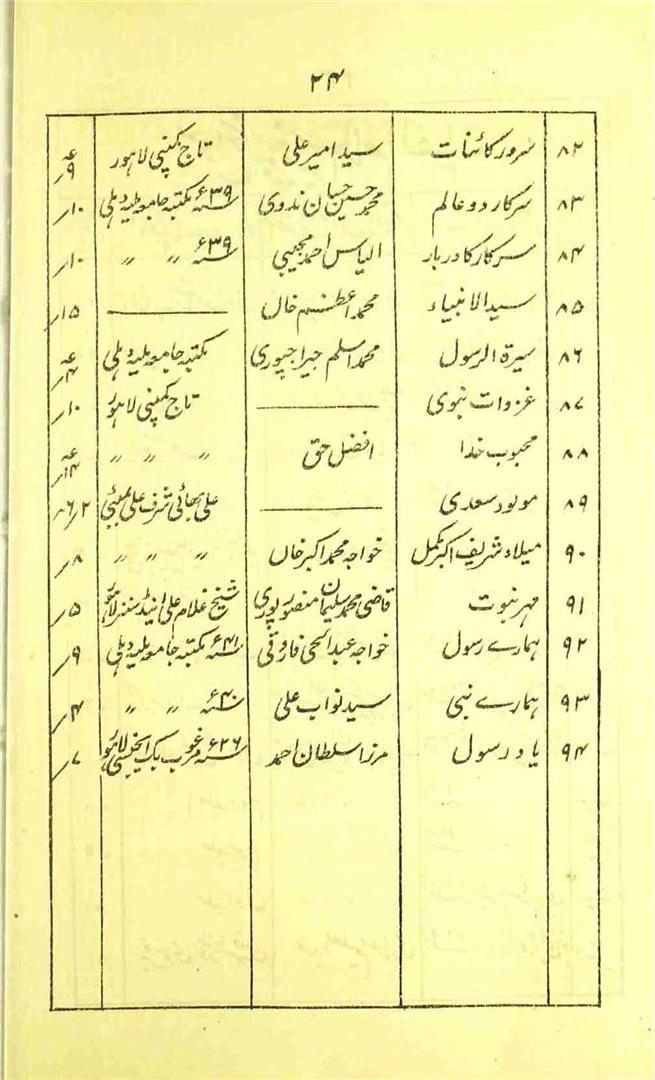 ۲۴
۸۲ سرور کائنات سید امیر علی تاج کمپنی لاہور عہ ۹ر
۸۳ سرکار دو عالم محمد حسین حسان ندوی ۳۹ء مکتبہ جامعہ ملیہ دہلی ۱۰ر
۸۴ سرکار کا دربار الیاس احمد مجیبی ۳۹ء 〃 〃 ۱۰ر
۸۵ سید الانبیاء محمد اعظم خاں ——— ۱۵ر
۸۶ سیرۃ الرسول محمد اسلم جیراجپوری مکتبہ جامعہ ملیہ دہلی عہ ۴ر
۸۷ غزوات نبوی ——— تاج کمپنی لاہور ۱۰ر
۸۸ محبوب خدا افضل حق 〃 〃 〃 عہ ۱۴ر
۸۹ مولود سعدی ——— علی بھائی شرف علی بمبئی
۹۰ میلاد شریف اکبر مکمل خواجہ محمد اکبر خاں 〃 〃 〃 ۸ر
۹۱ مہر نبوت قاضی محمد سلیمان منصور پوری شیخ غلام علی اینڈ سنز لاہور ۵ر
۹۲ ہمارے رسول خواجہ عبد الحی فاروقی ۴۱ء مکتبہ جامعہ ملیہ دہلی ۹ر
۹۳ ہمارے نبی سید نواب علی ۴۰ء 〃 〃 ۴ر
۹۴ یاد رسول مرزا سلطان احمد ۲۶ء مرغوب بک ایجنسی لاہور ۷ر